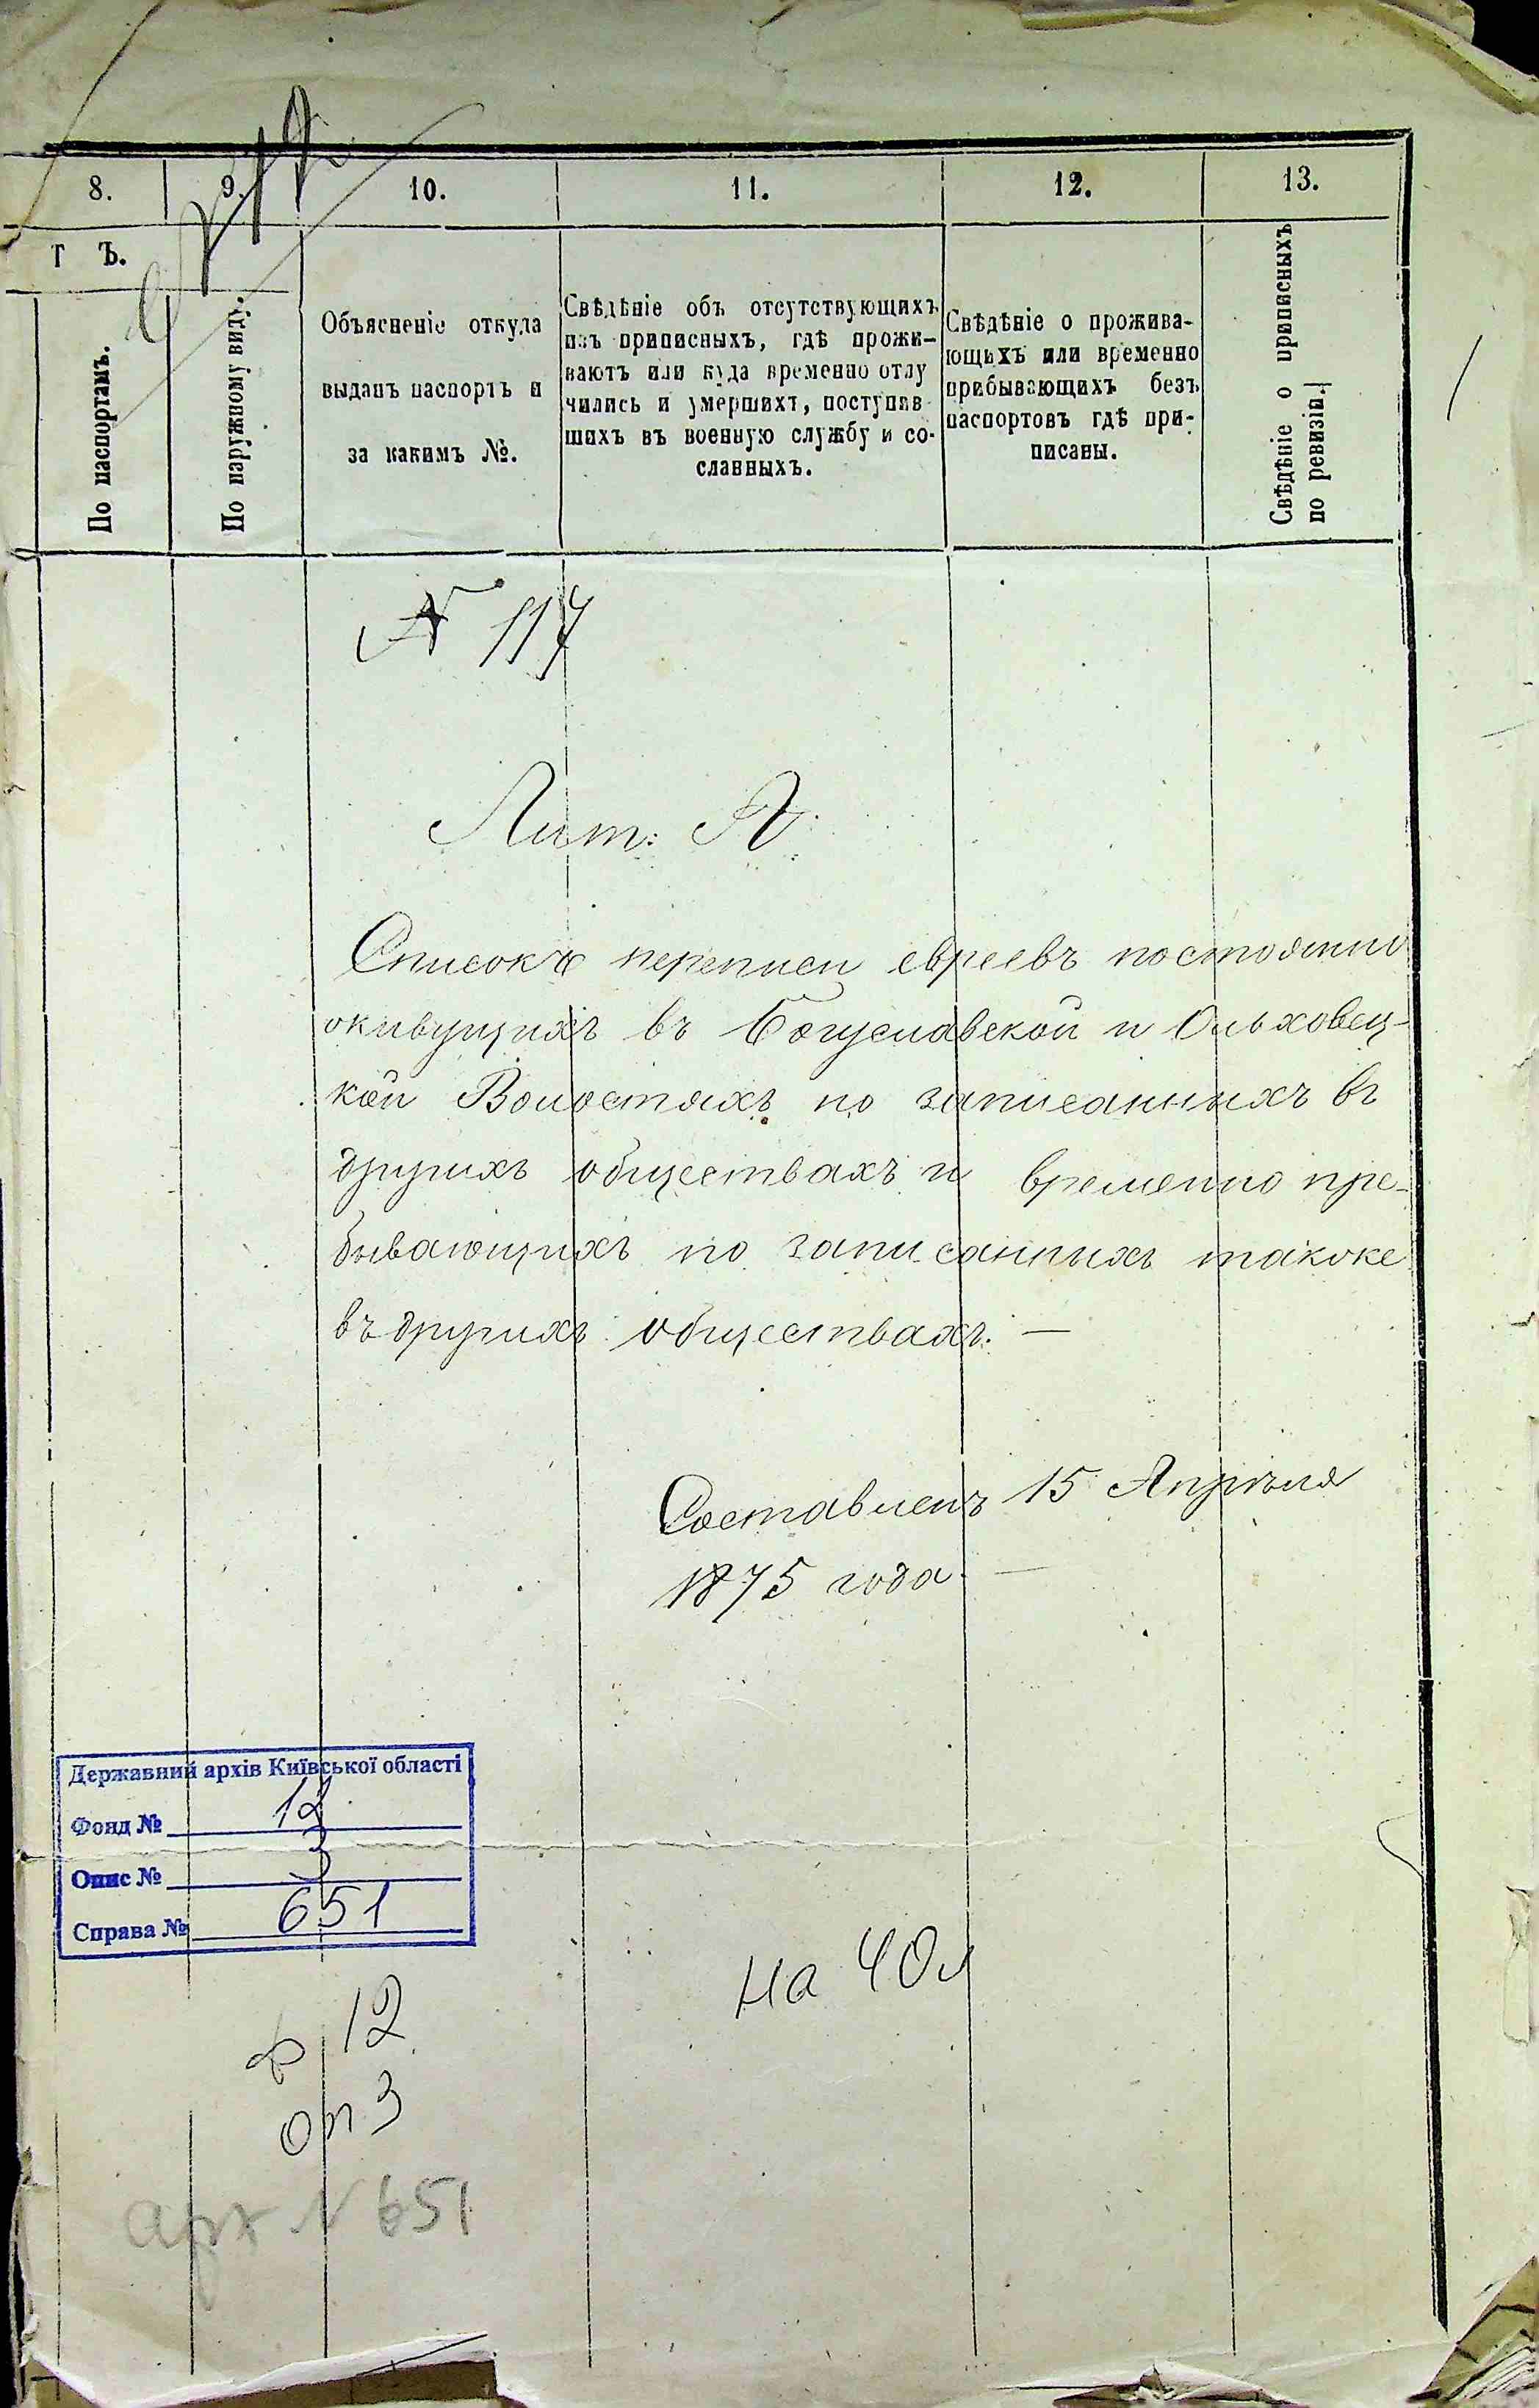 8.
9.
10.
11.
12.
13.
Т Ъ.
По паспортамъ.
По наружному виду.
Объясненіе откуда
выданъ паспортъ и
за какимъ №.
Свѣдѣніе объ отсутствующихъ
изъ приписныхъ, гдѣ прожи-
ваютъ или куда временно отлу
чились и умершихъ, поступив-
шихъ въ военную службу и со-
сланныхъ.
Свѣдѣніе о прожива-
ющихъ или временно
прибывающихъ безъ
паспортовъ гдѣ при-
писаны.
Свѣдѣніе о приписныхъ
по ревизіи.
N 117
Лит: А.
Списокъ переписи евреевъ постоянно
живущихъ въ Богуславской и Ольховец-
кой Волостяхъ но записанныхъ въ
другихъ обществахъ и временно пре-
бывающихъ но записанныхъ также
въ другихъ обществахъ. —
Составленъ 15 Апрѣля
1875 года. —
Державний архів Київської області
Фонд № 12
Опис № 3
Справа № 651
на 40л
ф 12
оп 3
арх N 651